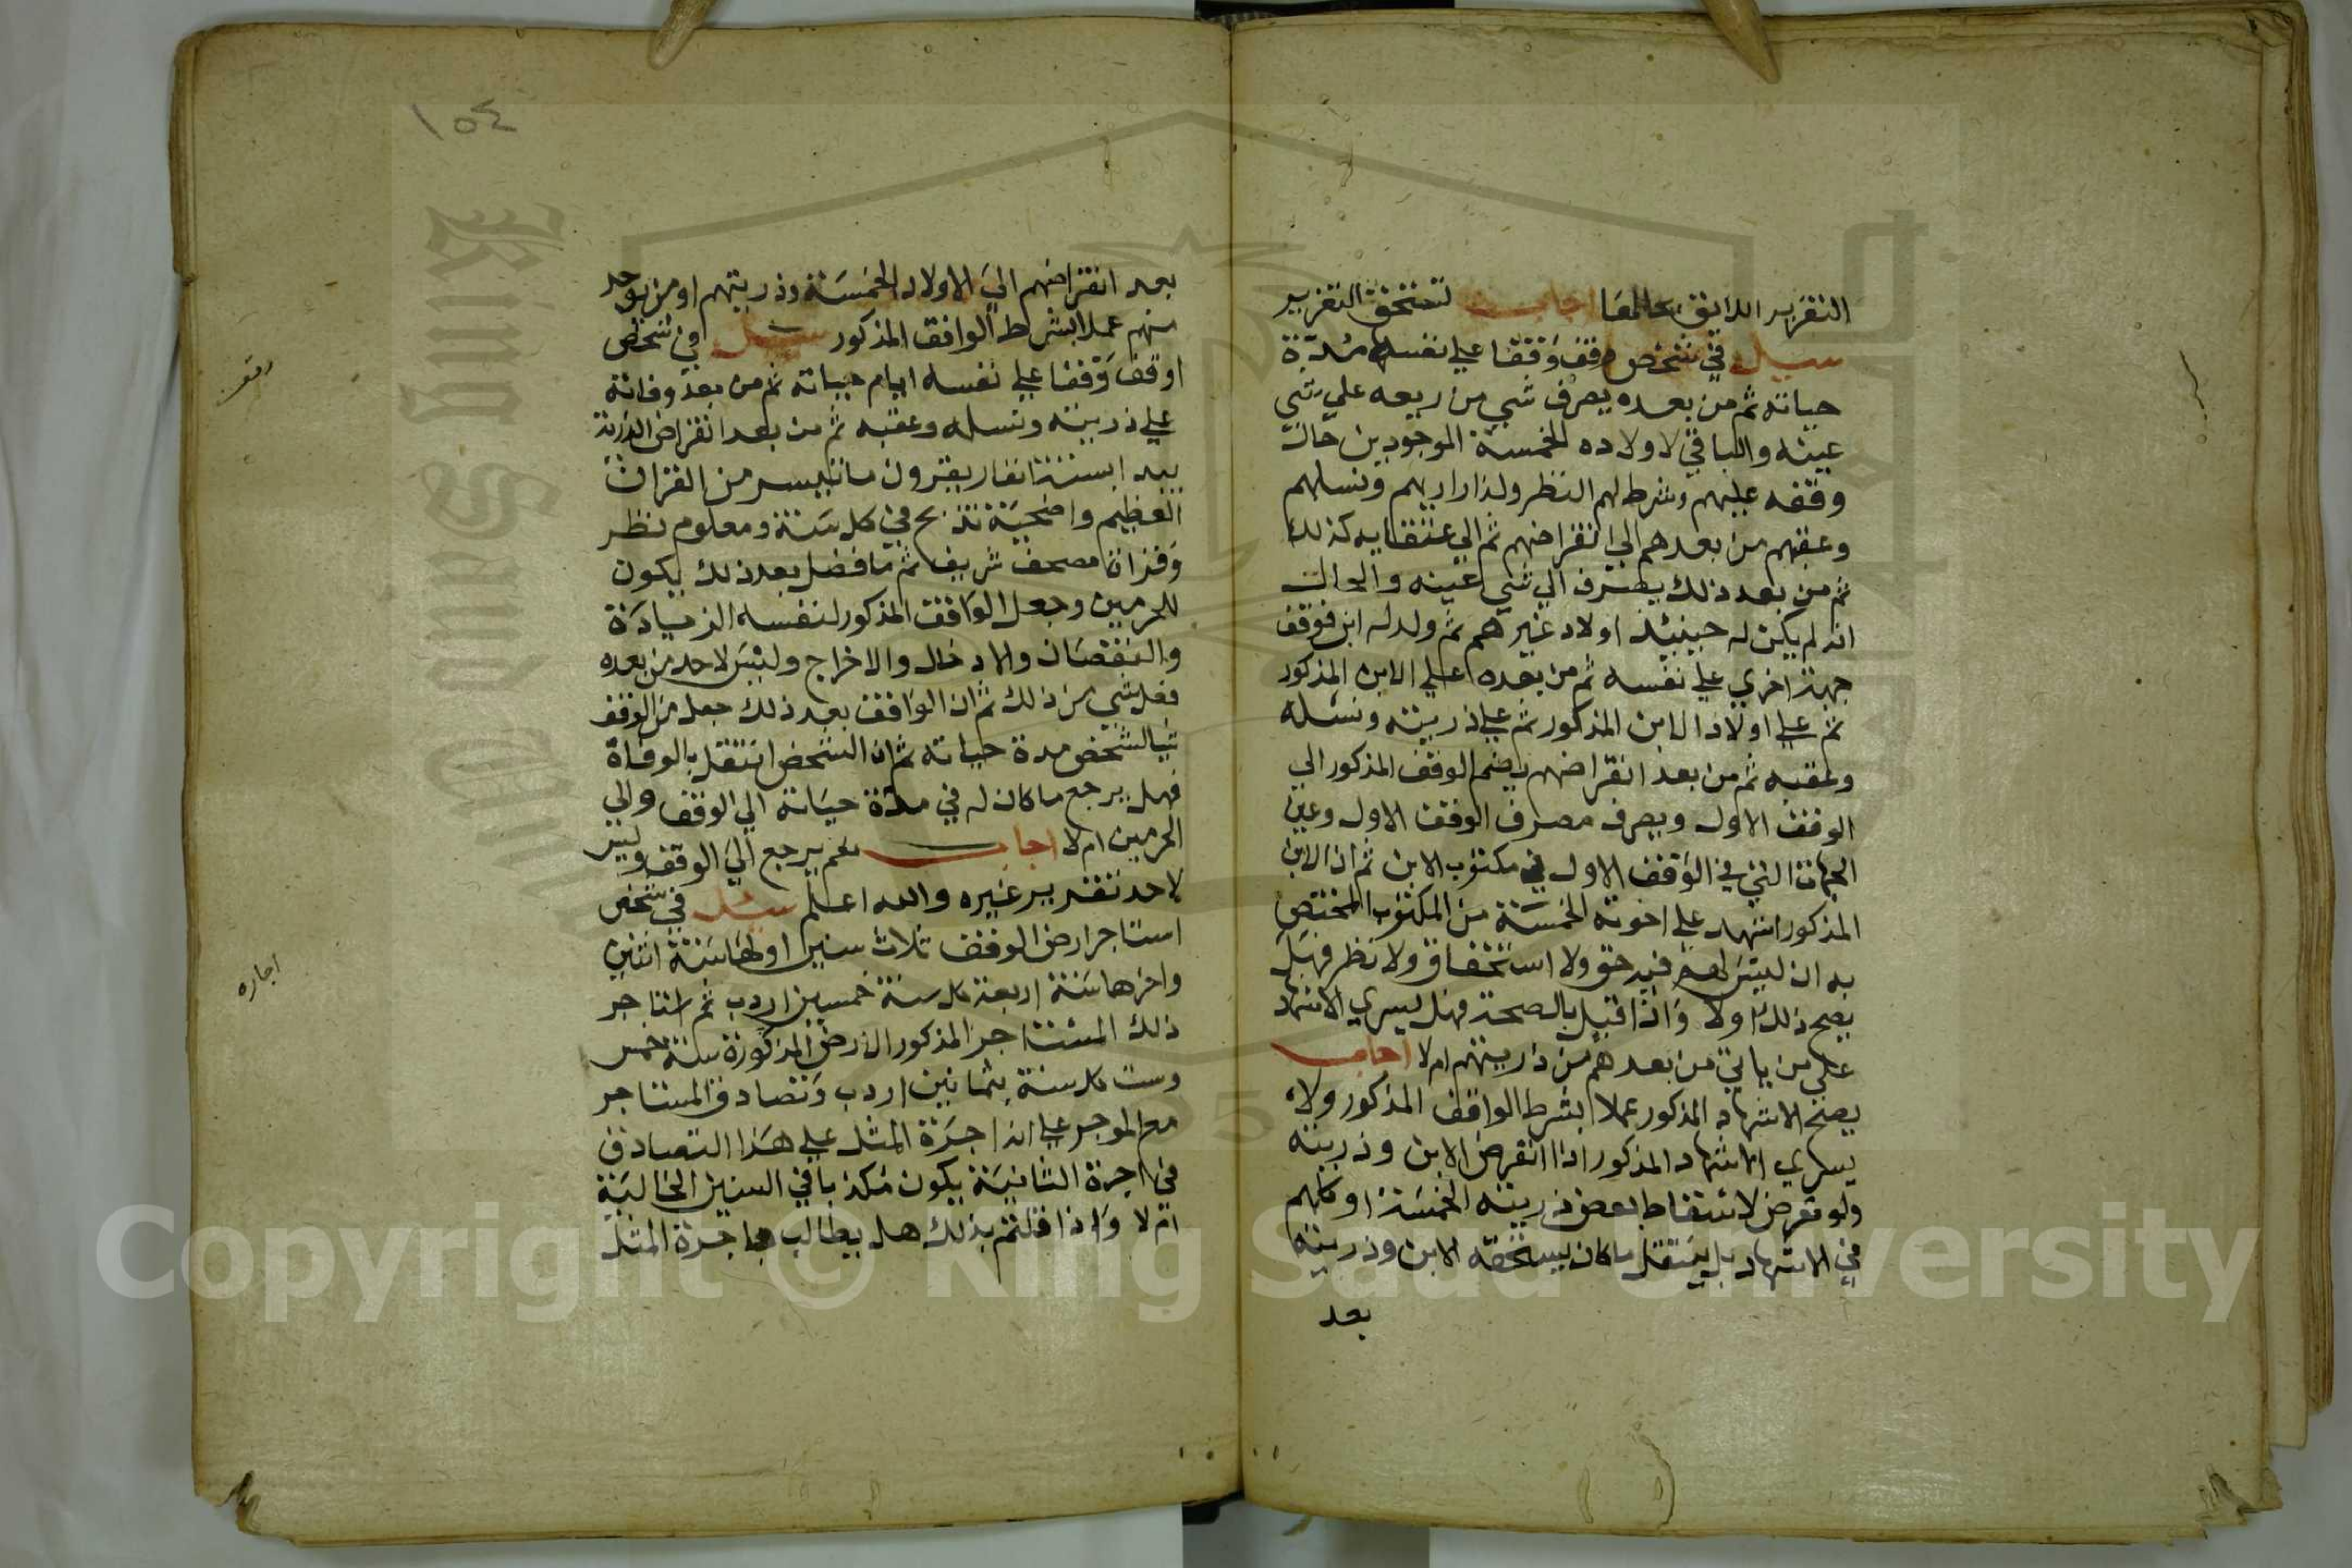 التعزير اللايق بحالها اجاب تستحق التعزير
سيل في شخص وقف وقفا علي نفسه مدة
حياته ثم من بعده يصرف شي من ريعه علي شي
عينه والباقي لاولاده الخمسة الموجودين حال
وقفه عليهم وشرط لهم النظر ولذراريهم ونسلهم
وعقبهم من بعدهم الي انقراضهم ثم الي عتقايه كذلك
ثم من بعد ذلك يصرف الي شي عينه والحال
انه لم يكن له حينيئذ اولاد غيرهم ثم ولد له ابن فوقف
جهة اخري علي نفسه ثم من بعده علي الابن المذكور
ثم علي اولاد الابن المذكور ثم علي ذريته ونسله
وعقبه ثم من بعد انقراضهم يضم الوقف المذكور الي
الوقف الاول ويصرف مصرف الوقف الاول وعين
الجهات التي في الوقف الاول في مكتوب الابن ثم ان الابن
المذكور اشهد علي اخوته الخمسة من المكتوب المختص
به ان ليس لهم فيه حق ولا استحقاق ولا نظر فهل
يصح ذلك اولا واذا قيل بالصحة فهل يسري الاشهاد
علي من ياتي من بعدهم من ذريتهم ام لا اجاب
يصح الاشهاد المذكور عملا بشرط الواقف المذكور ولا
يسري الاشهاد المذكور اذا انقرض الابن وذريته
ولو تعرض لاسقاط بعض ذريته الخمسة او كلهم
في الاشهاد بل ينتقل ما كان يستحقه الابن وذريته
بعد
١٥٤
بعد انقراضهم الي الاولاد الخمسة وذريتهم او من يوجد
منهم عملا بشرط الواقف المذكور سيل في شخص
اوقف وقفا علي نفسه ايام حياته ثم من بعد وفاته
علي ذريته ونسله وعقبه ثم من بعد انقراض الذرية
بيد ستة انفار يقرون ما تيسر من القران
العظيم واضحية تذبح في كل سنة ومعلوم نظر
وقراة مصحف شريف ثم ما فضل بعد ذلك يكون
للحرمين وجعل الواقف المذكور لنفسه الزيادة
والنقصان والادخال والاخراج وليس لاحد من بعده
فعل شي من ذلك ثم ان الواقف بعد ذلك جعل من الوقف
شيا لشخص مدة حياته ثم ان الشخص انتقل بالوفاة
فهل يرجع ما كان له في مدة حياته الي الوقف والي
الحرمين ام لا اجاب نعم يرجع الي الوقف وليس
لاحد تقرير غيره والله اعلم سيل في شخص
استاجر ارض الوقف ثلاث سنين اولها سنة اثنين
واخرها سنة اربعة كل سنة خمسين اردب ثم استاجر
ذلك المستاجر المذكور الارض المذكورة سنة خمس
وست كل سنة بثمانين اردب وتصادق المستاجر
مع الموجر علي ان اجرة المثل علي هذا التصادق
في اجرة الثانية يكون مكذبا في السنين الخالية
ام لا واذا قلتم بذلك هل يطالب باجرة المثل
وقف
اجاره